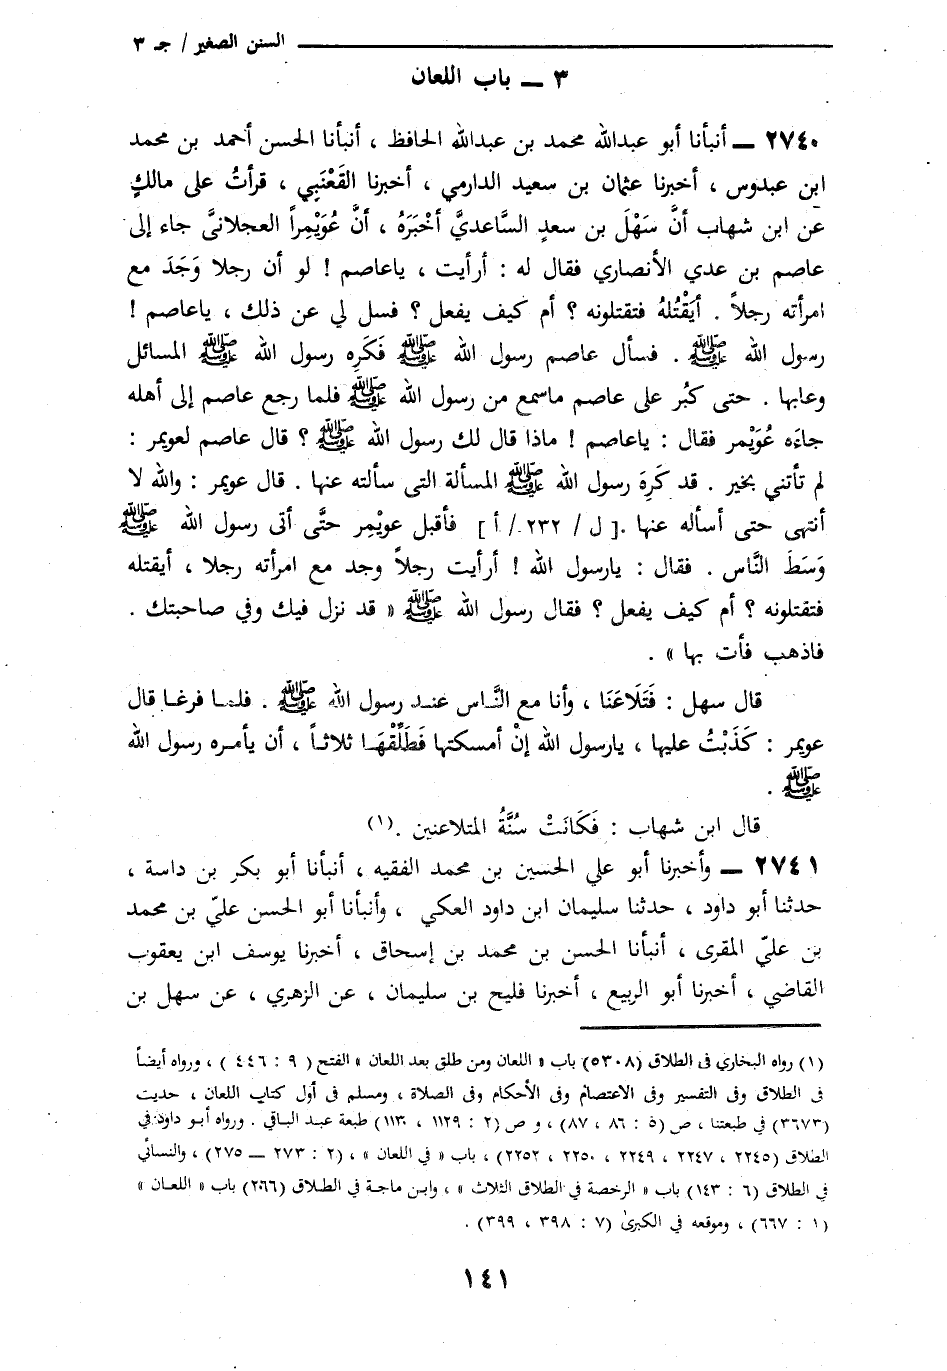 السنن الصغير / جـ ٣
٣ ــ باب اللعان
٢٧٤٠ ــ أنبأنا أبو عبدالله محمد بن عبدالله الحافظ ، أنبأنا الحسن أحمد بن محمد
ابن عبدوس ، أخبرنا عثمان بن سعيد الدارمي ، أخبرنا القَعْنَبِي ، قرأتُ على مالكٍ
عن ابن شهاب أنَّ سَهْلَ بن سعدٍ السَّاعديَّ أخْبَرَهُ ، أنَّ عُوَيْمِراً العجلانىَّ جاء إلى
عاصم بن عدي الأنصاري فقال له : أرأيت ، ياعاصم ! لو أن رجلا وَجَدَ مع
امرأته رجلاً . أيَقْتُلهُ فتقتلونه ؟ أم كيف يفعل ؟ فسل لي عن ذلك ، ياعاصم !
رسول الله ﷺ . فسأل عاصم رسول الله ﷺ فَكَرِه رسول الله ﷺ المسائل
وعابها . حتى كبُر على عاصم ماسمع من رسول الله ﷺ فلما رجع عاصم إلى أهله
جاءَه عُوَيْمر فقال : ياعاصم ! ماذا قال لك رسول الله ﷺ ؟ قال عاصم لعويمر :
لم تأتني بخير . قد كَرِهَ رسول الله ﷺ المسألة التى سألته عنها . قال عويمر : والله لا
أنتهى حتى أسأله عنها .[ ل / ٢٣٢ / أ ] فأقبل عويْمِر حتَّى أتى رسول الله ﷺ
وَسَطَ النَّاس . فقال : يارسول الله ! أرأيت رجلاً وجد مع امرأته رجلا ، أيقتله
فتقتلونه ؟ أم كيف يفعل ؟ فقال رسول الله ﷺ « قد نزل فيك وفي صاحبتك .
فاذهب فأت بها » .
قال سهل : فَتَلَاعَنَا ، وأنا مع النَّاس عند رسول الله ﷺ . فلما فرغا قال
عويمر : كَذَبْتُ عليها ، يارسول الله إنْ أمسكتها فَطَلَّقْهَا ثلاثاً ، أن يأمره رسول الله
ﷺ .
قال ابن شهاب : فَكَانَتْ سُنَّةُ المتلاعنين .(١)
٢٧٤١ ــ وأخبرنا أبو علي الحسين بن محمد الفقيه ، أنبأنا أبو بكر بن داسة ،
حدثنا أبو داود ، حدثنا سليمان ابن داود العكي ، وأنبأنا أبو الحسن عليّ بن محمد
بن عليّ المقرى ، أنبأنا الحسن بن محمد بن إسحاق ، أخبرنا يوسف ابن يعقوب
القاضي ، أخبرنا أبو الربيع ، أخبرنا فليح بن سليمان ، عن الزهري ، عن سهل بن
(١) رواه البخاري فى الطلاق (٥٣٠٨) باب « اللعان ومن طلق بعد اللعان » الفتح ( ٩ : ٤٤٦ ) ، ورواه أيضاً
فى الطلاق وفى التفسير وفى الاعتصام وفى الأحكام وفى الصلاة ، ومسلم فى أول كتاب اللعان ، حديث
(٣٦٧٣) في طبعتنا ، ص (٥ : ٨٦ ، ٨٧) ، و ص (٢ : ١١٢٩ ، ١١٣٠) طبعة عبد الباقي . ورواه أبو داود في
الطلاق (٢٢٤٥ ، ٢٢٤٧ ، ٢٢٤٩ ، ٢٢٥٠ ، ٢٢٥٢) ، باب « في اللعان » ، (٢ : ٢٧٣ ــ ٢٧٥) ، والنسائي
في الطلاق (٦ : ١٤٣) باب « الرخصة في الطلاق الثلاث » ، وابن ماجة في الطلاق (٢٠٦٦) باب « اللعان »
(١ : ٦٦٧) ، وموقعه في الكبرىٰ (٧ : ٣٩٨ ، ٣٩٩) .
١٤١